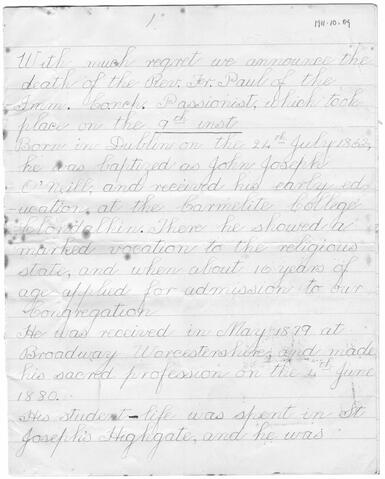 1.
1911-10-09
With much regret we announce the
death of the Rev. Fr. Paul of the
Imm. Conc. Passionist, which took
place on the 9th inst.
Born in Dublin on the 24th July 1862,
he was baptized as John Joseph
O'Neill, and received his early ed-
ucation at the Carmelite College
Clondalkin. There he showed a
marked vocation to the religious
state, and when about 16 years of
age applied for admission to our
Congregation
He was received in May 1879 at
Broadway Worcestershire, and made
his sacred profession on the 4th June
1880.
His student-life was spent in St
Joseph's Highgate, and he was